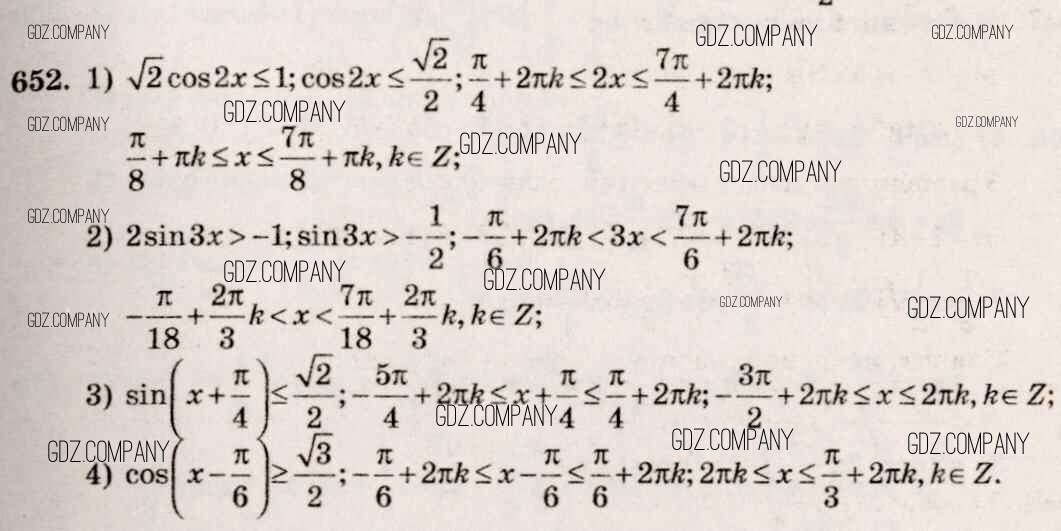 GDZ.COMPANY GDZ.COMPANY GDZ.COMPANY
652. 1) √2 cos2x ≤ 1; cos2x ≤ √2/2; π/4 + 2πk ≤ 2x ≤ 7π/4 + 2πk;
GDZ.COMPANY GDZ.COMPANY GDZ.COMPANY
π/8 + πk ≤ x ≤ 7π/8 + πk, k ∈ Z; GDZ.COMPANY
GDZ.COMPANY
GDZ.COMPANY
2) 2sin3x > -1; sin3x > -1/2; -π/6 + 2πk < 3x < 7π/6 + 2πk;
GDZ.COMPANY GDZ.COMPANY
-π/18 + 2π/3 k < x < 7π/18 + 2π/3 k, k ∈ Z;
GDZ.COMPANY GDZ.COMPANY GDZ.COMPANY
3) sin(x + π/4) ≤ √2/2; -5π/4 + 2πk ≤ x + π/4 ≤ π/4 + 2πk; -3π/2 + 2πk ≤ x ≤ 2πk, k ∈ Z;
GDZ.COMPANY
GDZ.COMPANY GDZ.COMPANY GDZ.COMPANY
4) cos(x - π/6) ≥ √3/2; -π/6 + 2πk ≤ x - π/6 ≤ π/6 + 2πk; 2πk ≤ x ≤ π/3 + 2πk, k ∈ Z.